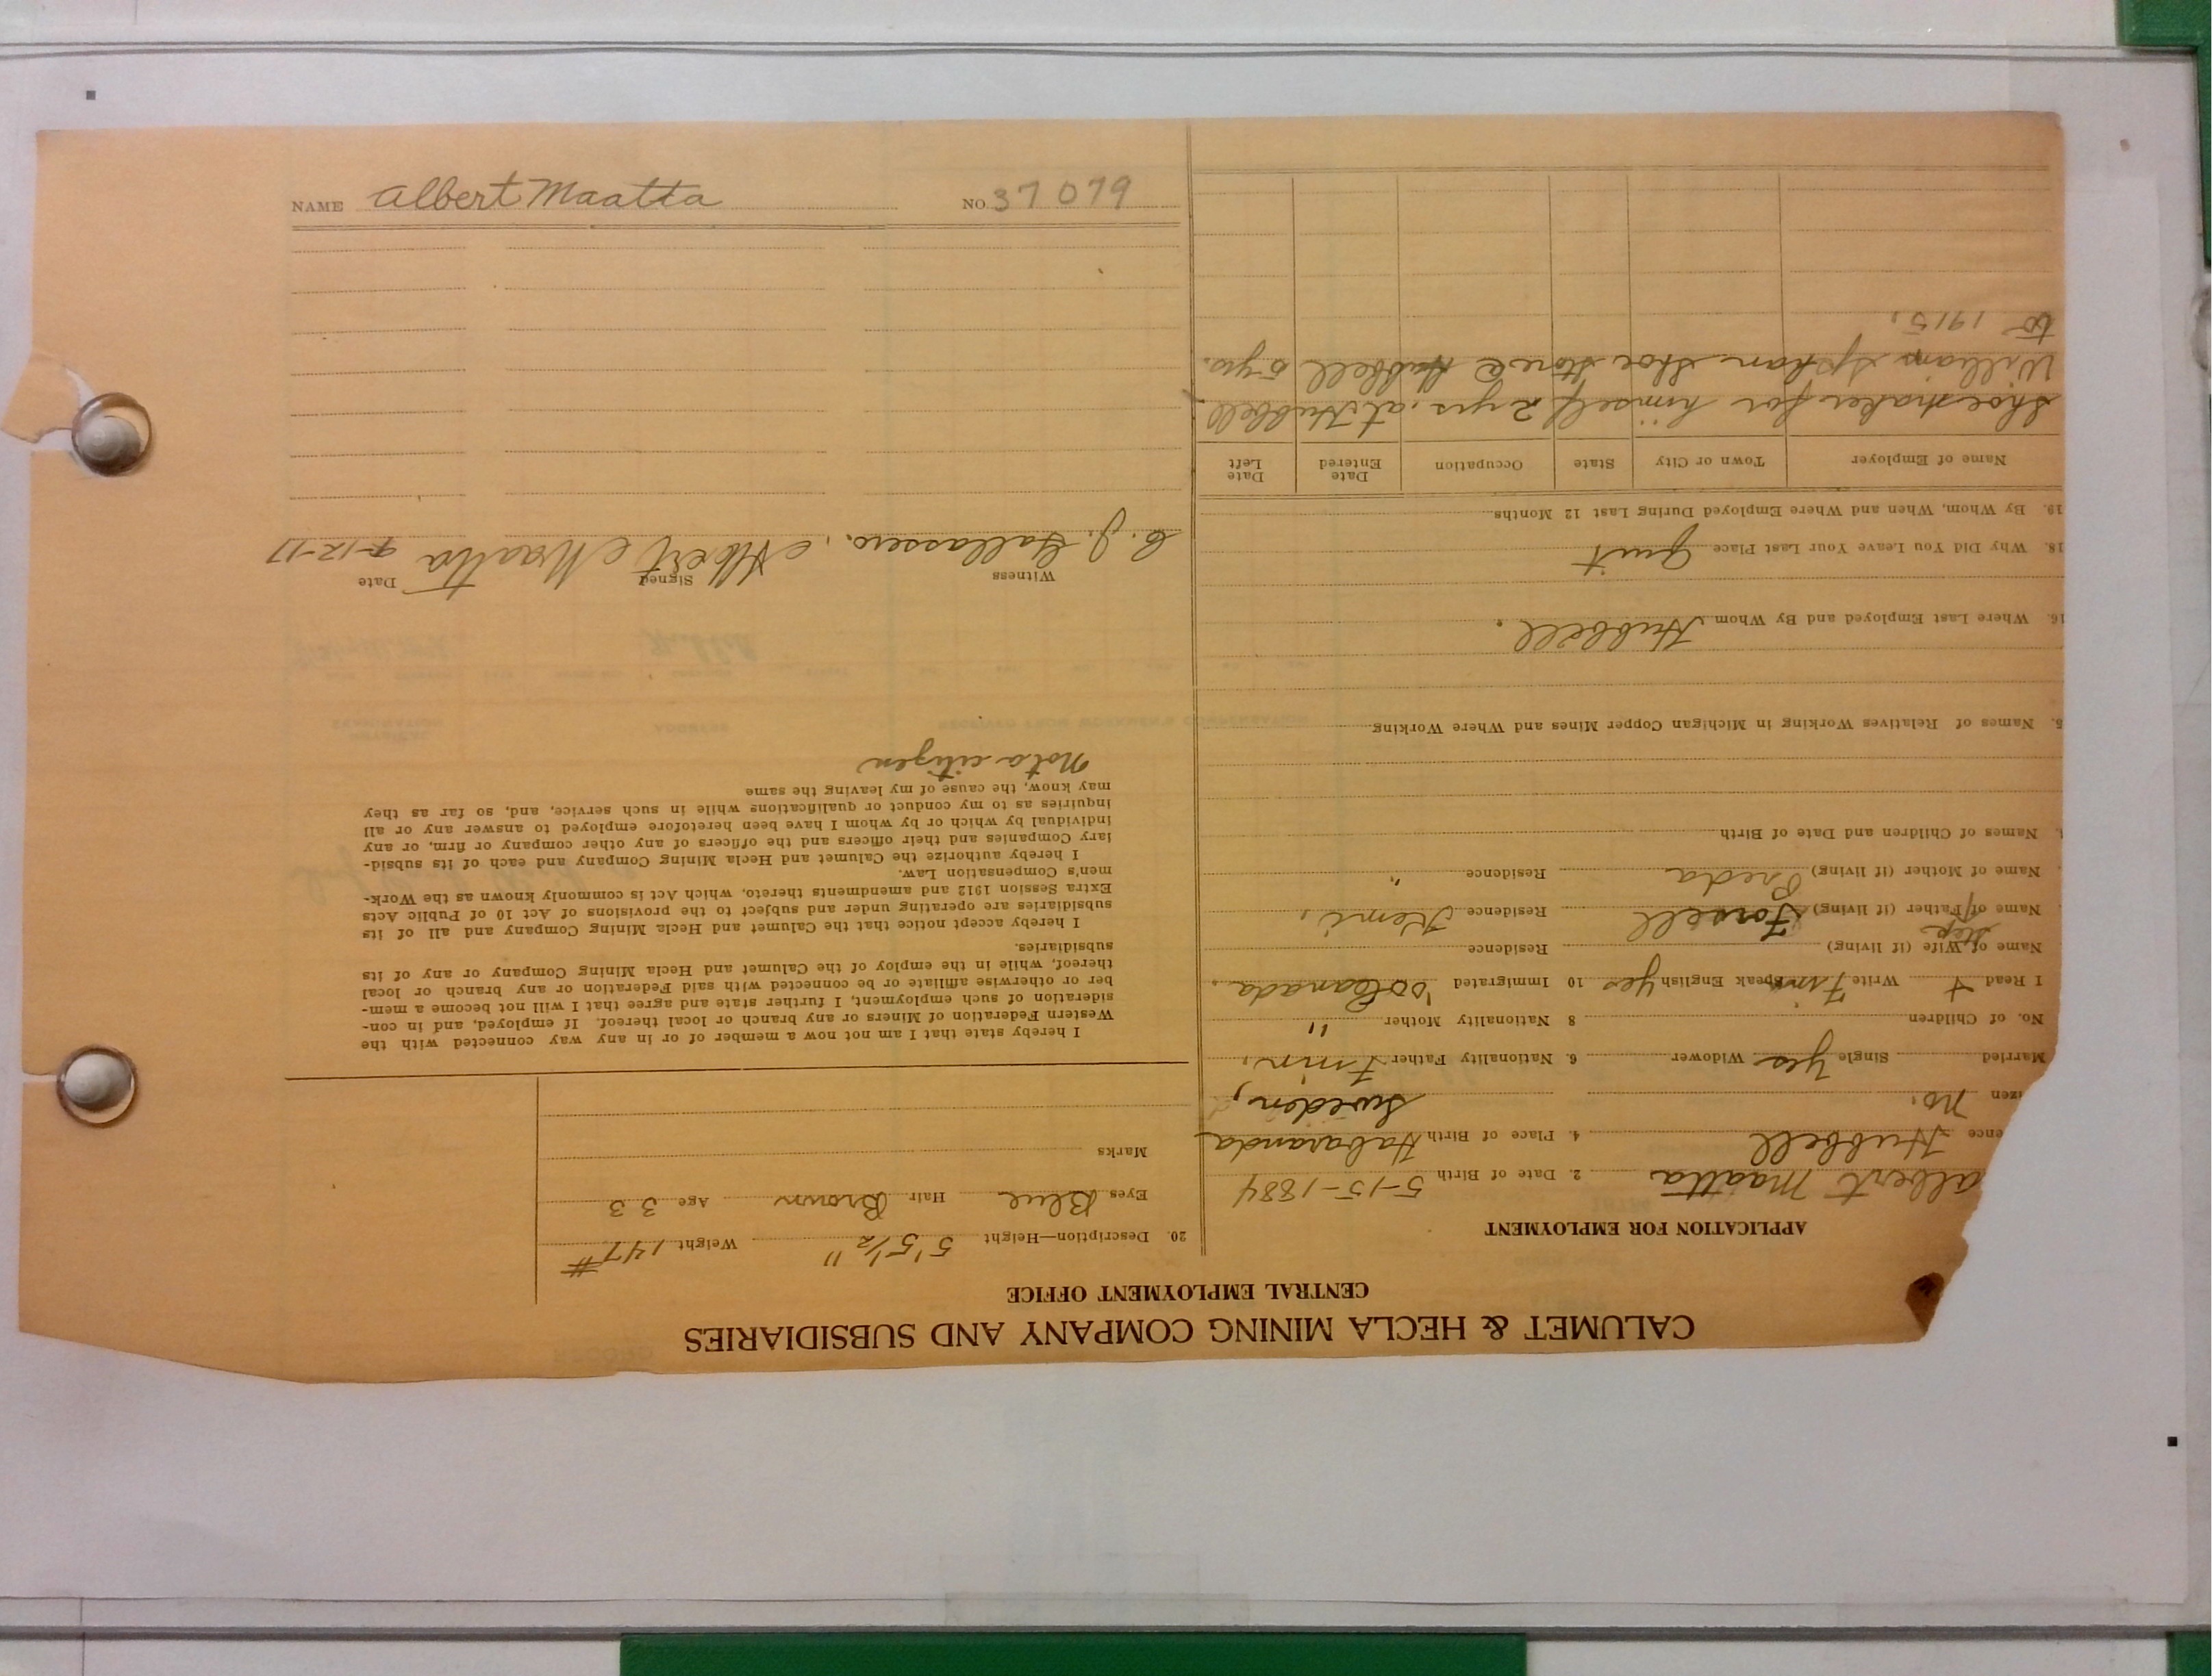 NAME Albert Maatta NO 37079
CALUMET & HECLA MINING COMPANY AND SUBSIDIARIES
CENTRAL EMPLOYMENT OFFICE
APPLICATION FOR EMPLOYMENT
Albert Maatta 2. Date of Birth 5-15-1884
ence Hubbell 4. Place of Birth Habaranda
izen no. Sweden,
Married Single yes Widower 6. Nationality Father Finn.
No. of Children 8 Nationality Mother "
I Read + Write Finn Speak English yes 10 Immigrated Canada.
Name of Wife (if living) Residence
Step
Name of Father (if living) Forsell Residence Kemi,
Name of Mother (if living) Preda Residence "
Names of Children and Date of Birth
5. Names of Relatives Working in Michigan Copper Mines and Where Working
16. Where Last Employed and By Whom Hubbell.
18. Why Did You Leave Your Last Place Quit
19. By Whom, When and Where Employed During Last 12 Months
Name of Employer Town or City State Occupation Date Entered Date Left
Shoemaker for himself 2 yrs. at Hubbell
William Shoe Store Hubbell 5 yrs.
to 1915.
20. Description—Height 5' 5 1/2" Weight 147#
Eyes Blue Hair Brown Age 33
Marks
I hereby state that I am not now a member of or in any way connected with the
Western Federation of Miners or any branch or local thereof. If employed, and in con-
sideration of such employment, I further state and agree that I will not become a mem-
ber or otherwise affiliate or be connected with said Federation or any branch or local
thereof, while in the employ of the Calumet and Hecla Mining Company or any of its
subsidiaries.
I hereby accept notice that the Calumet and Hecla Mining Company and all of its
subsidiaries are operating under and subject to the provisions of Act 10 of Public Acts
Extra Session 1912 and amendments thereto, which Act is commonly known as the Work-
men's Compensation Law.
I hereby authorize the Calumet and Hecla Mining Company and each of its subsid-
iary Companies and their officers and the officers of any other company or firm, or any
individual by which or by whom I have been heretofore employed to answer any or all
inquiries as to my conduct or qualifications while in such service, and, so far as they
may know, the cause of my leaving the same
Not a citizen
Witness Signed Date
C. J. Albert Maatta 9-12-17